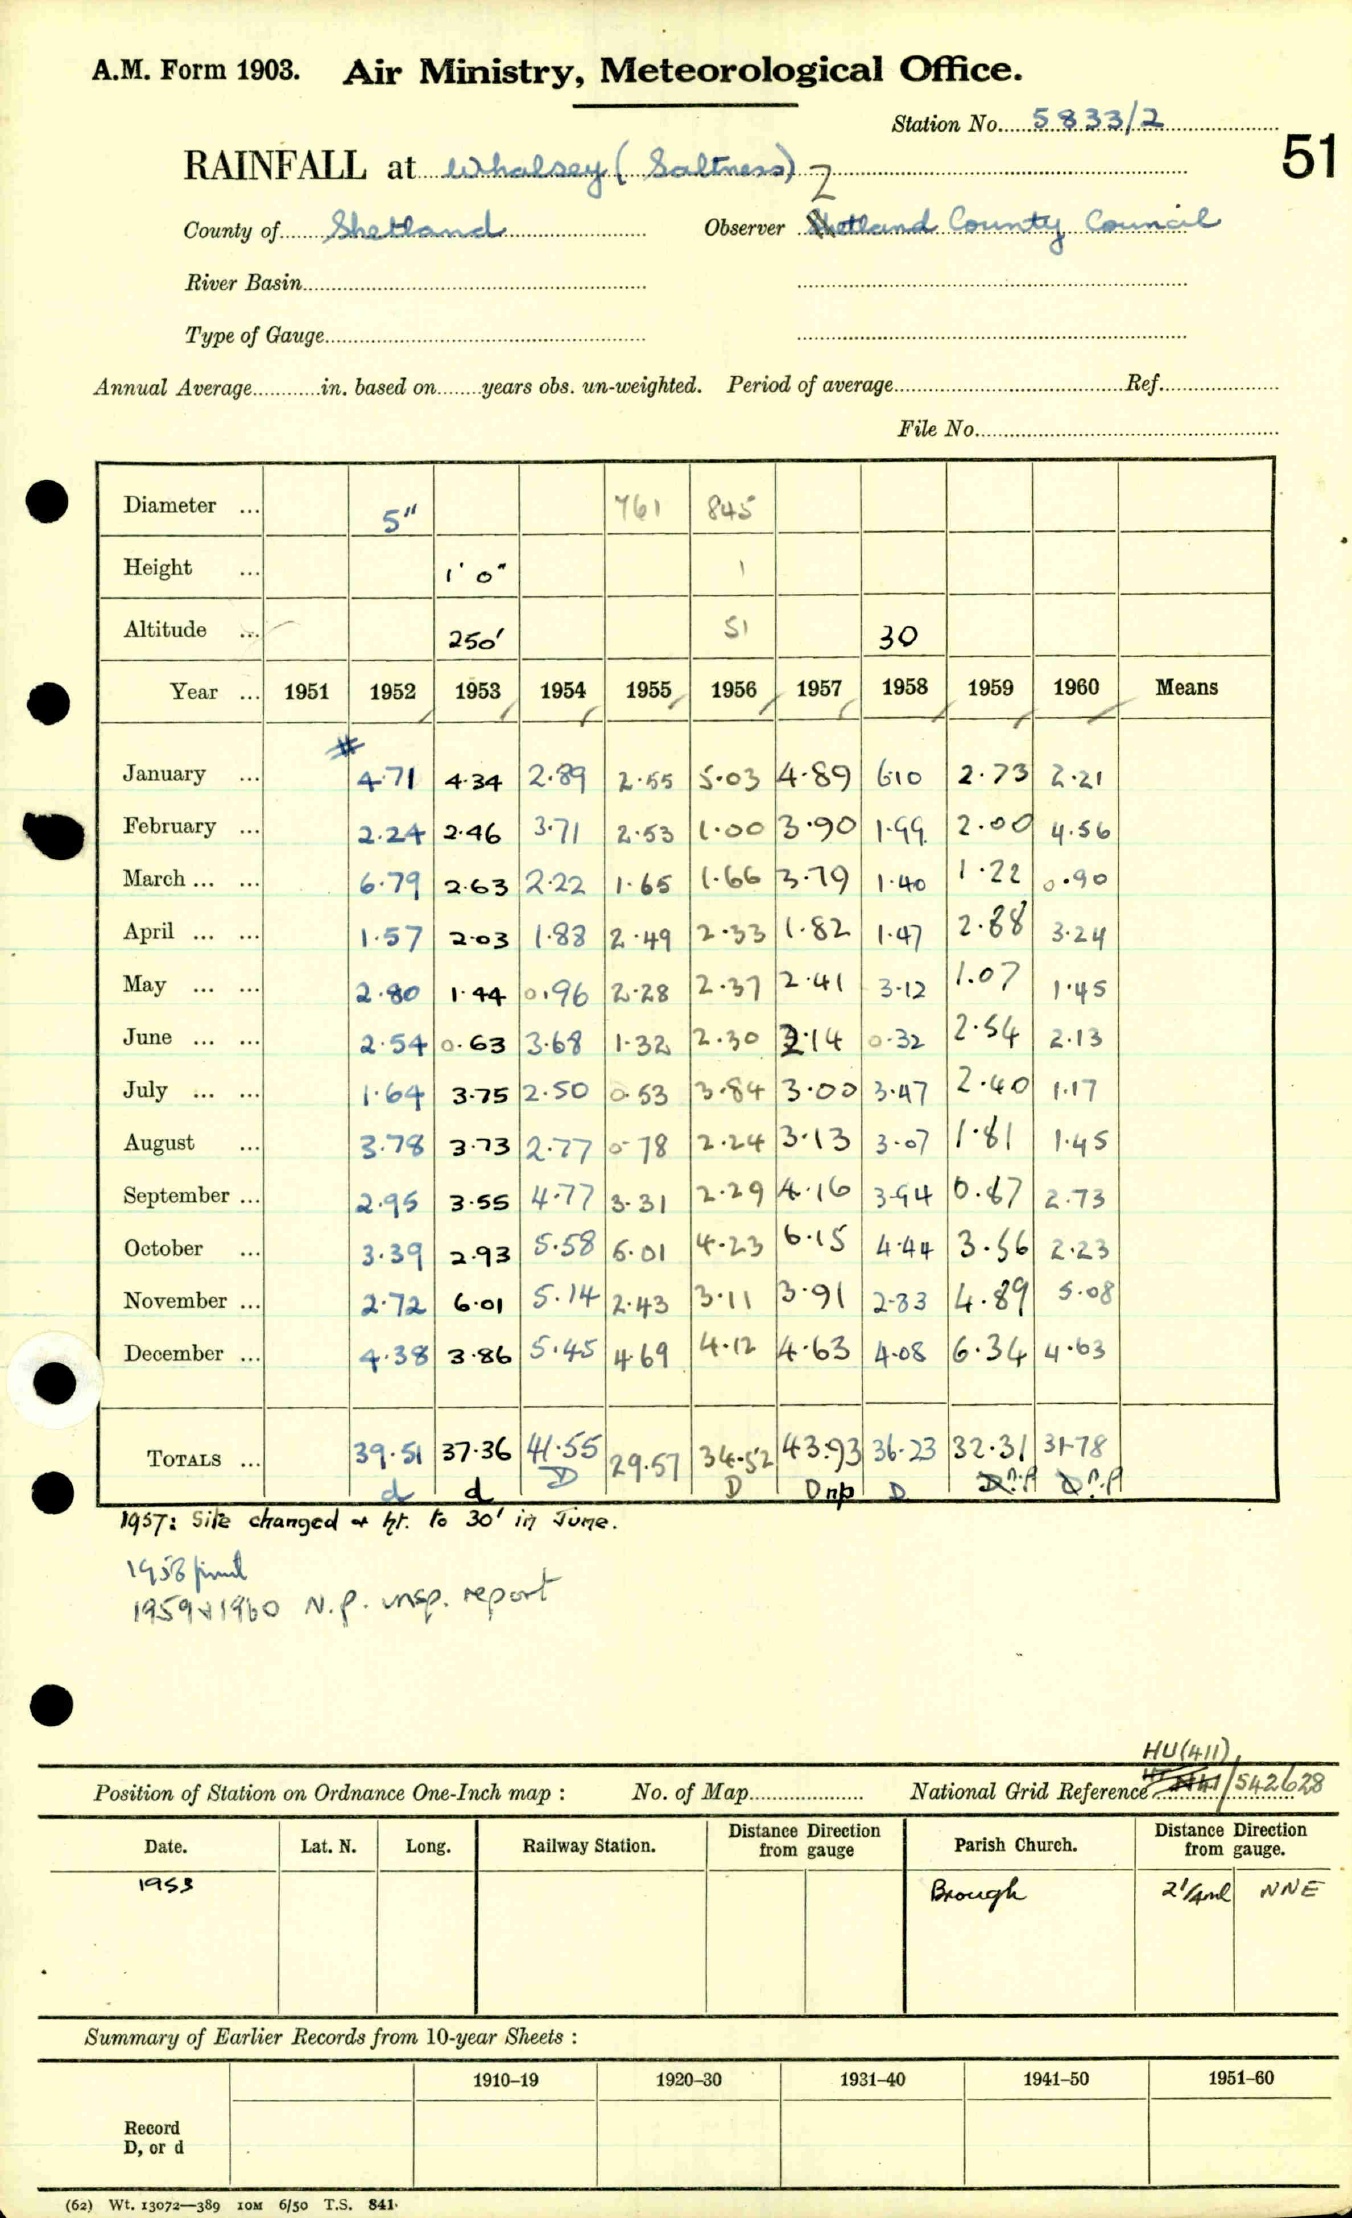 A.M. Form 1903. Air Ministry, Meteorological Office.
Station No. 5833/2
51
RAINFALL at Whalsey (Saltness) 2
County of Shetland Observer Shetland County Council
River Basin
Type of Gauge
Annual Average in. based on years obs. un-weighted. Period of average Ref.
File No.
Diameter ... 5" 761 845
Height ... 1' 0" 1
Altitude ... 250' 51 30
Year ... 1951 1952 1953 1954 1955 1956 1957 1958 1959 1960 Means
#
January ... 4.71 4.34 2.89 2.55 5.03 4.89 6.10 2.73 2.21
February ... 2.24 2.46 3.71 2.53 1.00 3.90 1.99 2.00 4.56
March ... ... 6.79 2.63 2.22 1.65 1.66 3.79 1.40 1.22 0.90
April ... ... 1.57 2.03 1.88 2.49 2.33 1.82 1.47 2.88 3.24
May ... ... 2.80 1.44 0.96 2.28 2.37 2.41 3.12 1.07 1.45
June ... ... 2.54 0.63 3.68 1.32 2.30 2.14 0.32 2.54 2.13
July ... ... 1.64 3.75 2.50 0.53 3.84 3.00 3.47 2.40 1.17
August ... 3.78 3.73 2.77 0.78 2.24 3.13 3.07 1.81 1.45
September ... 2.95 3.55 4.77 3.31 2.29 4.16 3.94 0.87 2.73
October ... 3.39 2.93 5.58 5.01 4.23 6.15 4.44 3.56 2.23
November ... 2.72 6.01 5.14 2.43 3.11 3.91 2.83 4.89 5.08
December ... 4.38 3.86 5.45 4.69 4.12 4.63 4.08 6.34 4.63
TOTALS ... 39.51 37.36 41.55 29.57 34.52 43.93 36.23 32.31 31.78
d d D D D np D D n.p D n.p
1957: Site changed & ht. to 30' in June.
1958
1959 & 1960 N.p. insp. report
HU(411)
Position of Station on Ordnance One-Inch map : No. of Map National Grid Reference /542628
Date. Lat. N. Long. Railway Station. Distance Direction from gauge Parish Church. Distance Direction from gauge.
1953 Brough 2¼ml NNE
Summary of Earlier Records from 10-year Sheets :
1910–19 1920–30 1931–40 1941–50 1951–60
Record
D, or d
(62) Wt. 13072—389 10M 6/50 T.S. 841